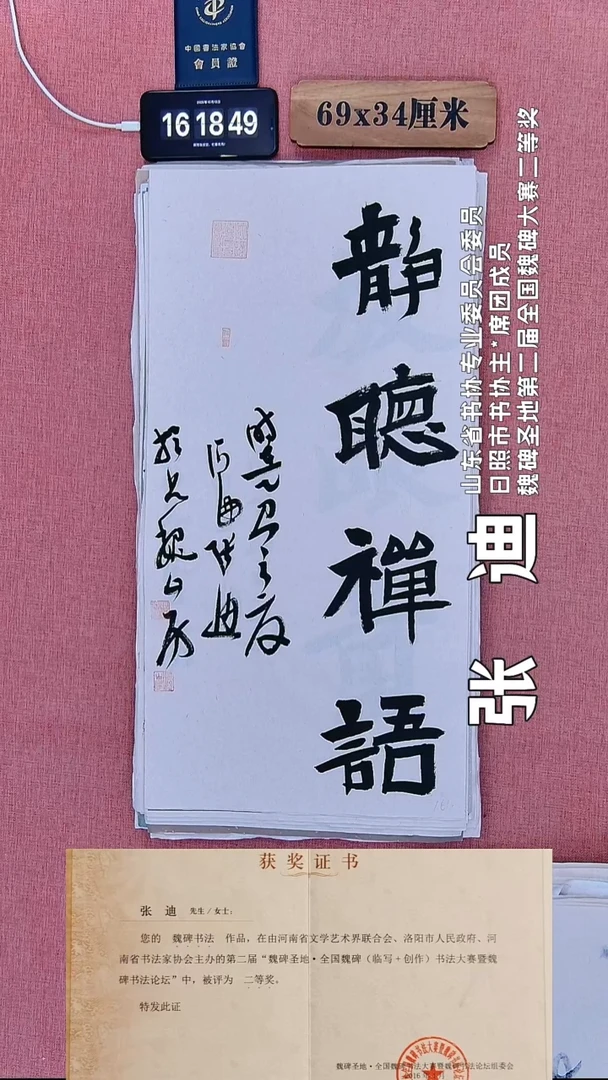 中國書法家協會
會員證
16 18 49
69x34厘米
静聽禪語
山东省书协专业委员会委员
日照市书协主*席团成员
魏碑圣地第二届全国魏碑大赛二等奖
张 迪
获奖证书
张 迪 先生/女士：
您的 魏碑书法 作品，在由河南省文学艺术界联合会、洛阳市人民政府、河
南省书法家协会主办的第二届“魏碑圣地·全国魏碑（临写+创作）书法大赛暨魏
碑书法论坛”中，被评为 二等奖。
特发此证
魏碑圣地·全国魏碑书法大赛暨魏碑书法论坛组委会